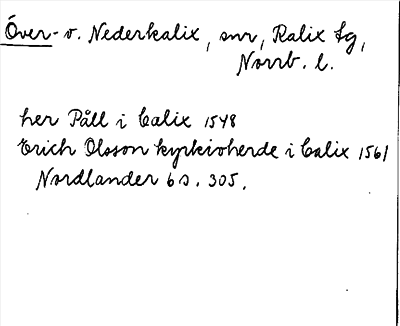 Över- o. Nederkalix, snr, Kalix tg,
Norrb. l.
her Påll i Calix 1548
Erich Olsson kyrkioherde i Calix 1561
Nordlander 6 s. 305.